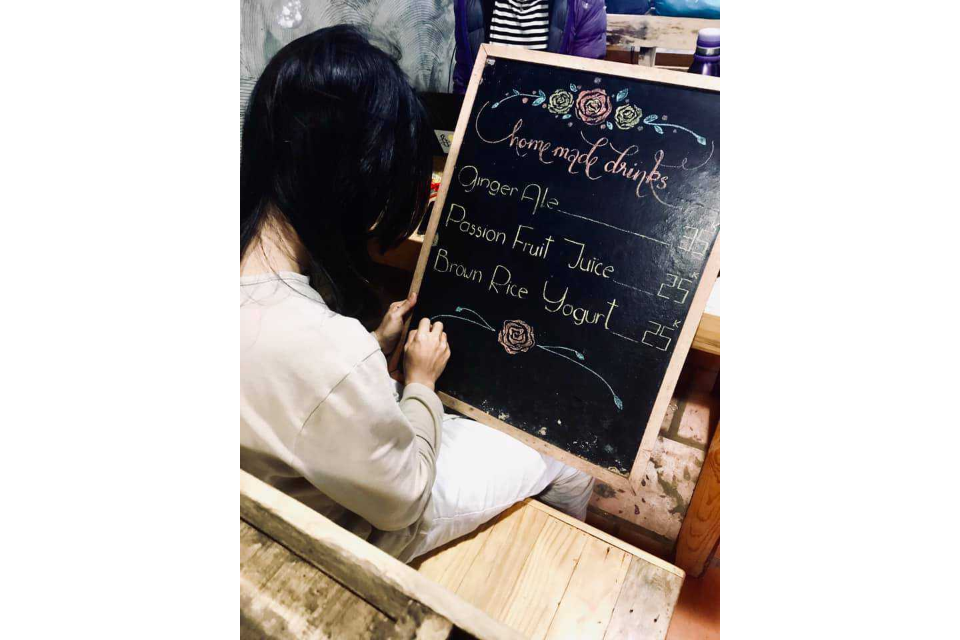 homemade drinks
Ginger Ale
Passion Fruit Juice 25K
Brown Rice Yogurt 25K